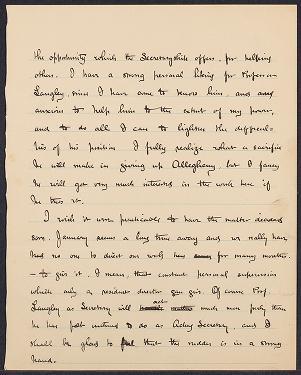 the opportunity which the Secretaryship offers, for helping
others. I have a strong personal liking for Professor
Langley, since I have come to know him, and am
anxious to help him to the extent of my power,
and to do all I can to lighten the difficul-
ties of his position. I fully realize what a sacrifice
he will make in giving up Allegheny, but I fancy
he will get very much interested in the work here if
he tries it.
I wish it were practicable to have the matter decided
soon. January seems a long time away and we really have
had no one to direct our work here for many months
- to give it, I mean, that constant personal supervision
which only a resident director can give. Of course Prof.
Langley as Secretary will act much more freely than
he has felt inclined to do as Acting Secretary, and I
shall be glad to feel that the rudder is in a strong
hand.